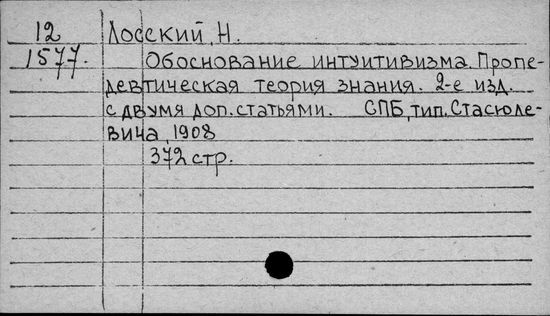 12 Лосский, Н.
1577. Обоснование интуитивизма. Пропе-
девтическая теория знания. 2-е изд.
с двумя доп. статьями. СПБ, тип. Стасюле-
вича, 1908
372 стр.